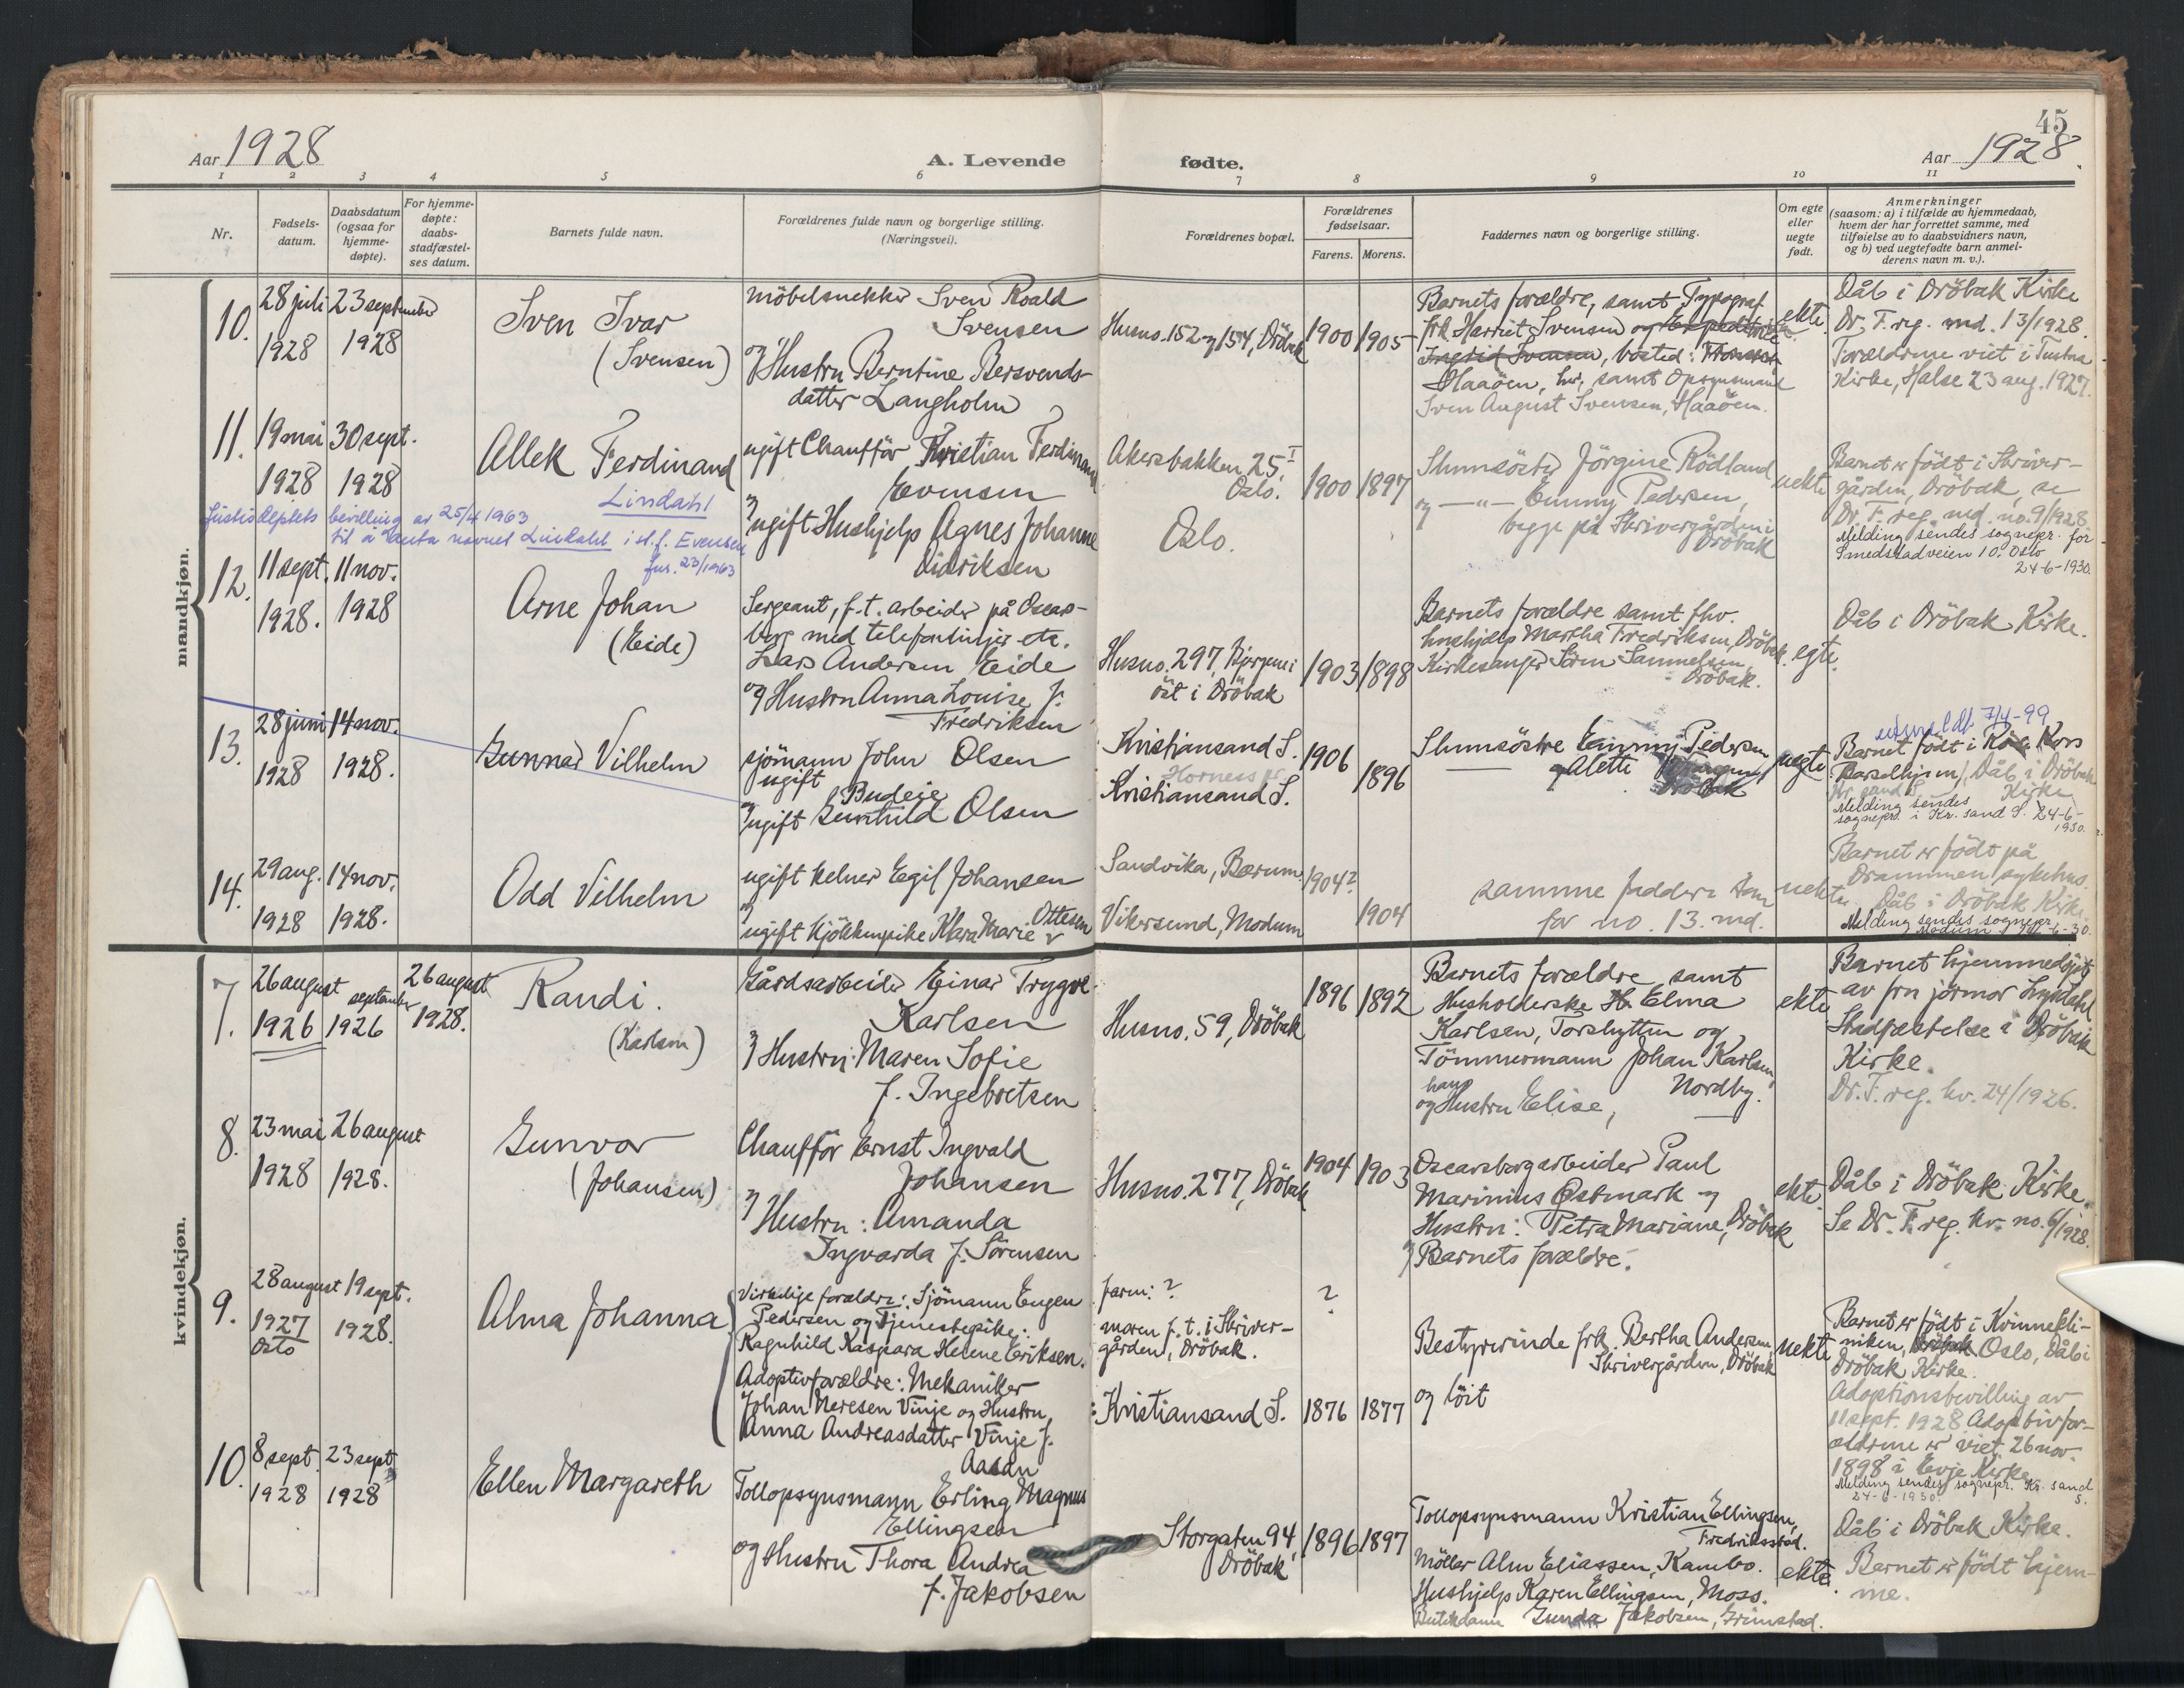 45
Aar 1928
A. Levende
fødte.
Aar 1928.
1 2 3 4 5 6 7 8 9 10 11
Nr.
Fødsels-
datum.
Daabsdatum
(ogsaa for
hjemme-
døpte).
For hjemme-
døpte:
daabs-
stadfæstel-
ses datum.
Barnets fulde navn.
Forældrenes fulde navn og borgerlige stilling.
(Næringsvei).
Forældrenes bopæl.
Forældrenes
fødselsaar.
Farens. Morens.
Faddernes navn og borgerlige stilling.
Om egte
eller
uegte
født.
Anmerkninger
(saasom: a) i tilfælde av hjemmedaab,
hvem der har forrettet samme, med
tilføielse av to daabsvidners navn,
og b) ved uegtefødte barn anmel-
derens navn m. v.).
mandkjøn.
10.
28 juli
1928
23 september
1928
Sven Ivar
(Svensen)
Möbelsnekker Sven Roald
Svensen
og Hustru Berntine Bersvends-
datter Langholm
Husno. 152 og 154, Dröbak
1900
1905
Barnets forældre, samt Typograf
frk. Harriet Svensen og
Ingrid Svensen, bosted:
Haaöen, her, samt Opsynsmand
Sven August Svensen, Haaöen.
ekte.
Dåb i Dröbak Kirke
Dr. F. reg. md. 13/1928.
Forældrene viet i Tustna
Kirke, Halse 23 aug. 1927.
11.
19 mai
1928
30 sept.
1928
Allek Ferdinand
Lindahl
Justisdeptets bevilling av 25/4 1963
til å anta navnet Lindahl i st. f. Evensen
jnr. 23/1963
ugift Chaufför Kristian Ferdinand
Evensen
og
ugift Hushjelp Agnes Johanne
Didriksen
Akersbakken 25 I
Oslo.
Oslo.
1900
1897
Slumsöster Jörgine Rödland
og —"— Emmy Pedersen,
begge på Skrivergården i
Dröbak
uekte
Barnet er födt i Skriver-
gården, Dröbak, se
Dr. F. reg. md. no. 9/1928
Melding sendes sognepr. for
Smedstadveien 10. Oslo
24-6-1930.
12.
11 sept.
1928.
11 nov.
1928
Arne Johan
(Eide)
Sergeant, f. t. arbeider på Oscars-
borg med telefonlinjer etc.
Lars Andersen Eide
og Hustru Anna Louise f.
Fredriksen
Husno. 297, Bjergene i
öst i Dröbak
1903
1898
Barnets forældre samt fhv.
hushjelp Martha Fredriksen, Dröbak.
Kirkesanger Sören Samuelsen,
Dröbak.
egte.
Dåb i Dröbak Kirke.
13.
28 juni
1928
14 nov.
1928.
Gunnar Vilhelm
sjömann John Olsen
ugift
og Budeie
ugift Gunhild Olsen
Kristiansand S.
Horness pr.
Kristiansand S.
1906
1896
Slumsöstre Emmy Pedersen
og Aletti
Dröbak
uegte
7/4-99
Barnet födt i Röde Kors
Barselhjem, Dåb i Dröbak
Kr.sand S. Kirke
Melding sendes
sognepr. i Kr. sand S. 24-6-
1930.
14.
29 aug.
1928
14 nov.
1928.
Odd Vilhelm
ugift kelner Egil Johansen
og
ugift Kjökkenpike Klara Marie Ottesen
Sandvika, Bærum.
Vikersund, Modum
1904?
1904
samme faddere som
for no. 13. md.
uekte
Barnet er födt på
Drammen sykehus.
Dåb i Dröbak Kirke.
Melding sendes sognepr.
Modum 24-6-30.
kvindekjøn.
7.
26 august
1926
september
1926
26 august
1928.
Randi.
(Karlsen)
Gårdsarbeider Einar Trygve
Karlsen
og Hustru: Maren Sofie
f. Ingebretsen
Husno. 59, Dröbak
1896
1892
Barnets forældre samt
Husholderske Elma
Karlsen, Torshytten og
Tömmermann Johan Karlsen,
hans Nordby.
og Hustru Elise,
ekte
Barnet hjemmedöpt
av fru jörmor Lyndahl
Stadfæstelse i Dröbak
Kirke.
Dr. F. reg. kv. 24/1926.
8.
23 mai
1928
26 august
1928.
Gunvor
(Johansen)
Chaufför Ernst Ingvald
Johansen
og
Hustru: Amanda
Ingvarda f. Sörensen
Husno. 277, Dröbak
1904
1903
Oscarsborgarbeider Paul
Marinius Østmark og
Hustru: Petra Mariane, Dröbak
og Barnets forældre.
ekte.
Dåb i Dröbak Kirke.
Se Dr. F. reg. kv. no. 6/1928.
9.
28 august
1927
Oslo
19 sept.
1928.
Alma Johanna
Virkelige forældre: Sjömann Eugen
Pedersen og Tjenestepike:
Ragnhild Kaspara Helene Eriksen.
Adoptivforældre: Mekaniker
Johan Neresen Vinje og Hustru
Anna Andreasdatter Vinje f.
Aasan
farm: ?
moren f. t. i Skriver-
gården, Dröbak.
Kristiansand S.
?
1876
1877
Bestyrerinde frk. Bertha Andersen,
Skrivergården, Dröbak
og löit
uekte
Barnet er födt i Kvinnekli-
niken, Dröbak Oslo, Dåb i
Dröbak Kirke.
Adoptionsbevilling av
11 sept. 1928. Adoptivfor-
ældrene er viet 26 nov.
1898 i Evje Kirke
Melding sendes sognepr. Kr. sand
24-6-1930. S.
10.
8 sept.
1928
23 sept
1928
Ellen Margareth
Tollopsynsmann Erling Magnus
Ellingsen
og Hustru Thora Andrea
f. Jakobsen
Storgaten 94,
Dröbak
1896
1897
Tollopsynsmann Kristian Ellingsen,
Fredriksstad.
Möller Alm Eliassen, Kambo.
Hushjelp Karen Ellingsen, Moss.
Butikdame Gunda Jakobsen, Grimstad.
ekte.
Dåb i Dröbak Kirke.
Barnet er födt hjem-
me.